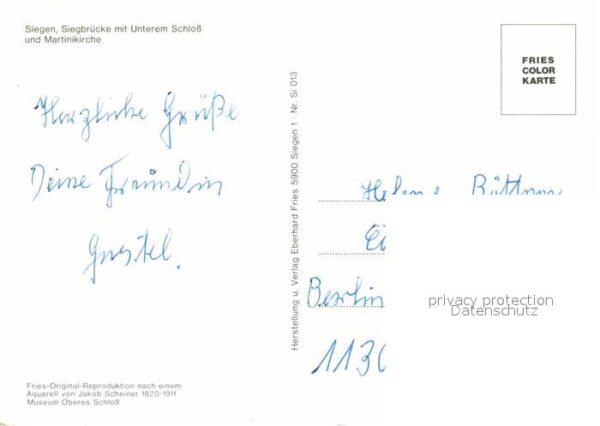 Siegen, Siegbrücke mit Unterem Schloß
und Martinikirche
FRIES
COLOR
KARTE
Herzliche Grüße
Deine Freundin
Gustel.
Herstellung u. Verlag Eberhard Fries 5900 Siegen 1 · Nr. Si 013
Berlin
113
privacy protection
Datenschutz
Fries-Original-Reproduktion nach einem
Aquarell von Jakob Scheiner 1820-1911
Museum Oberes Schloß